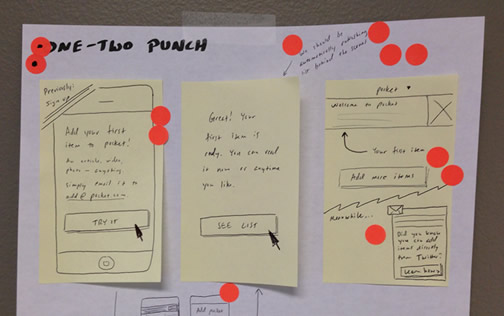 ONE-TWO PUNCH
we should be
automatically refreshing
behind the scenes
Previously:
Sign up
Add your first
item to pocket!
An article, video,
photo - anything.
Simply email it to
add@pocket.com
TRY IT
Great! Your
first item is
ready. You can read
it now or anytime
you like.
SEE LIST
pocket ♥
Welcome to pocket
Your first item
Add more items
Meanwhile...
Did you know
you can add
items directly
from Twitter?
Learn how
Add pocket